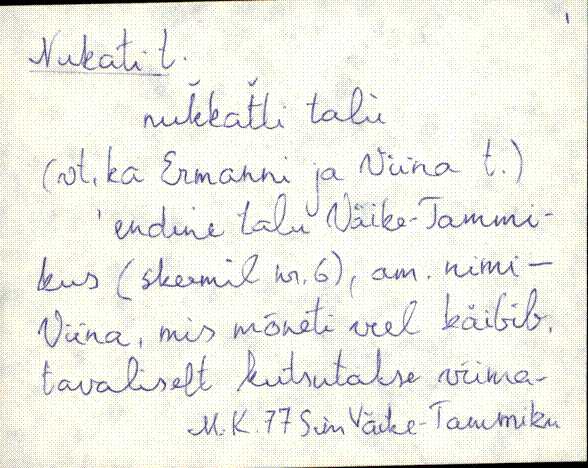 Nukati t.
nuk̆kat̆ti talu
(vt. ka Ermanni ja Viina t.)
endine talu Väike-Tammi-
kus (skeemil nr. 6), am. nimi –
Viina, mis mõneti veel käibib,
tavaliselt kutsutakse viima-
M.K. 77 Sim Väike-Tammiku